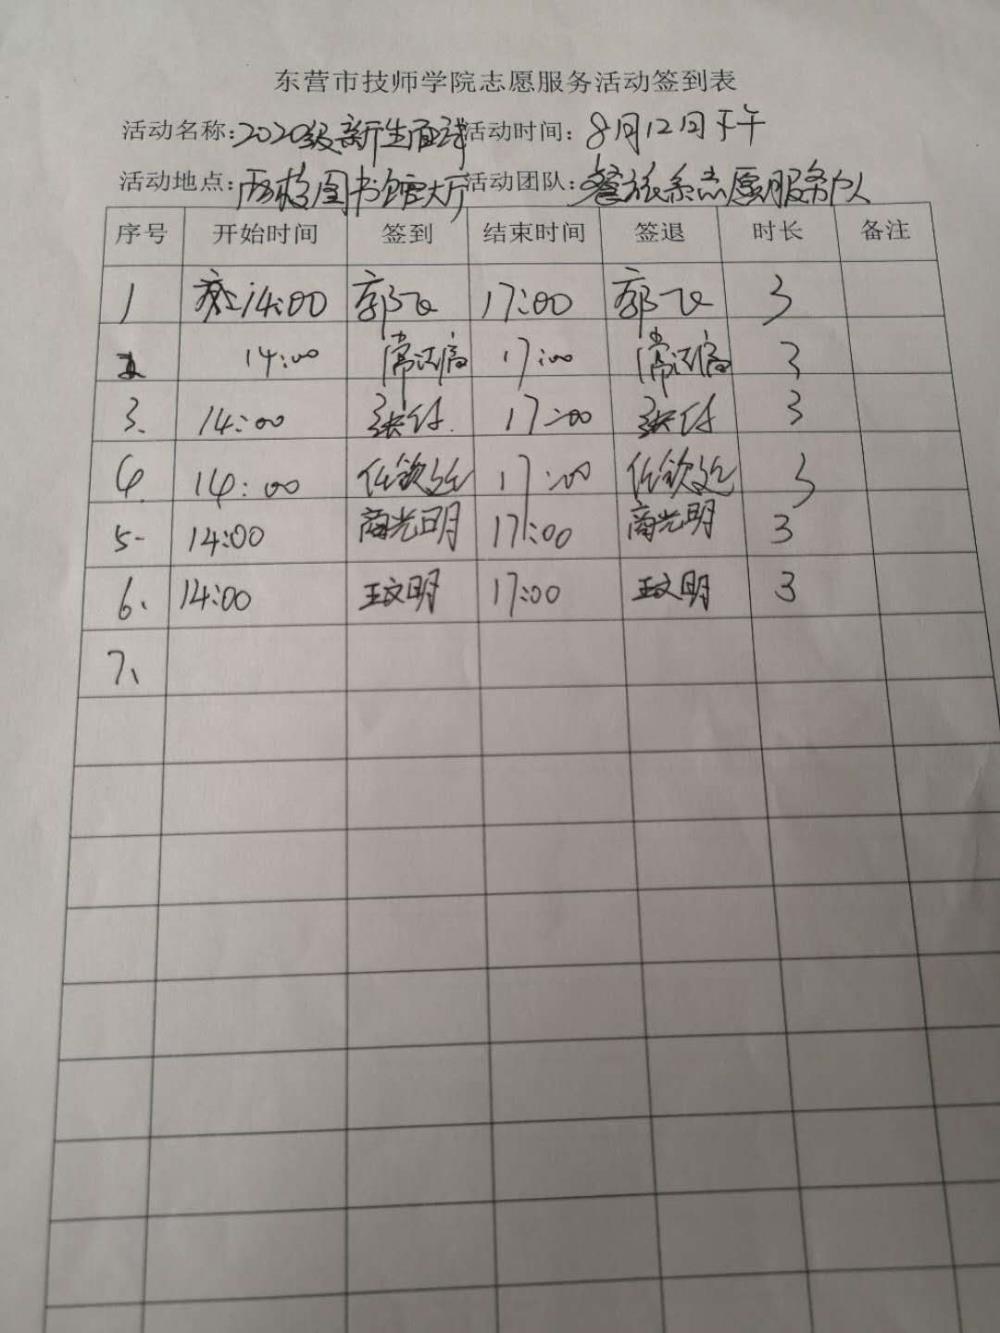 东营市技师学院志愿服务活动签到表
活动名称:2020级新生面试 活动时间: 8月12日下午
活动地点:西校图书馆大厅 活动团队:餐旅系志愿服务队
序号 开始时间 签到 结束时间 签退 时长 备注
1 14:00 郭飞 17:00 郭飞 3
2 14:00 常 17:00 常 3
3、 14:00 张付 17:00 张付 3
4. 14:00 任钦 17:00 任钦 3
5- 14:00 商光明 17:00 商光明 3
6、 14:00 王文明 17:00 王文明 3
7、